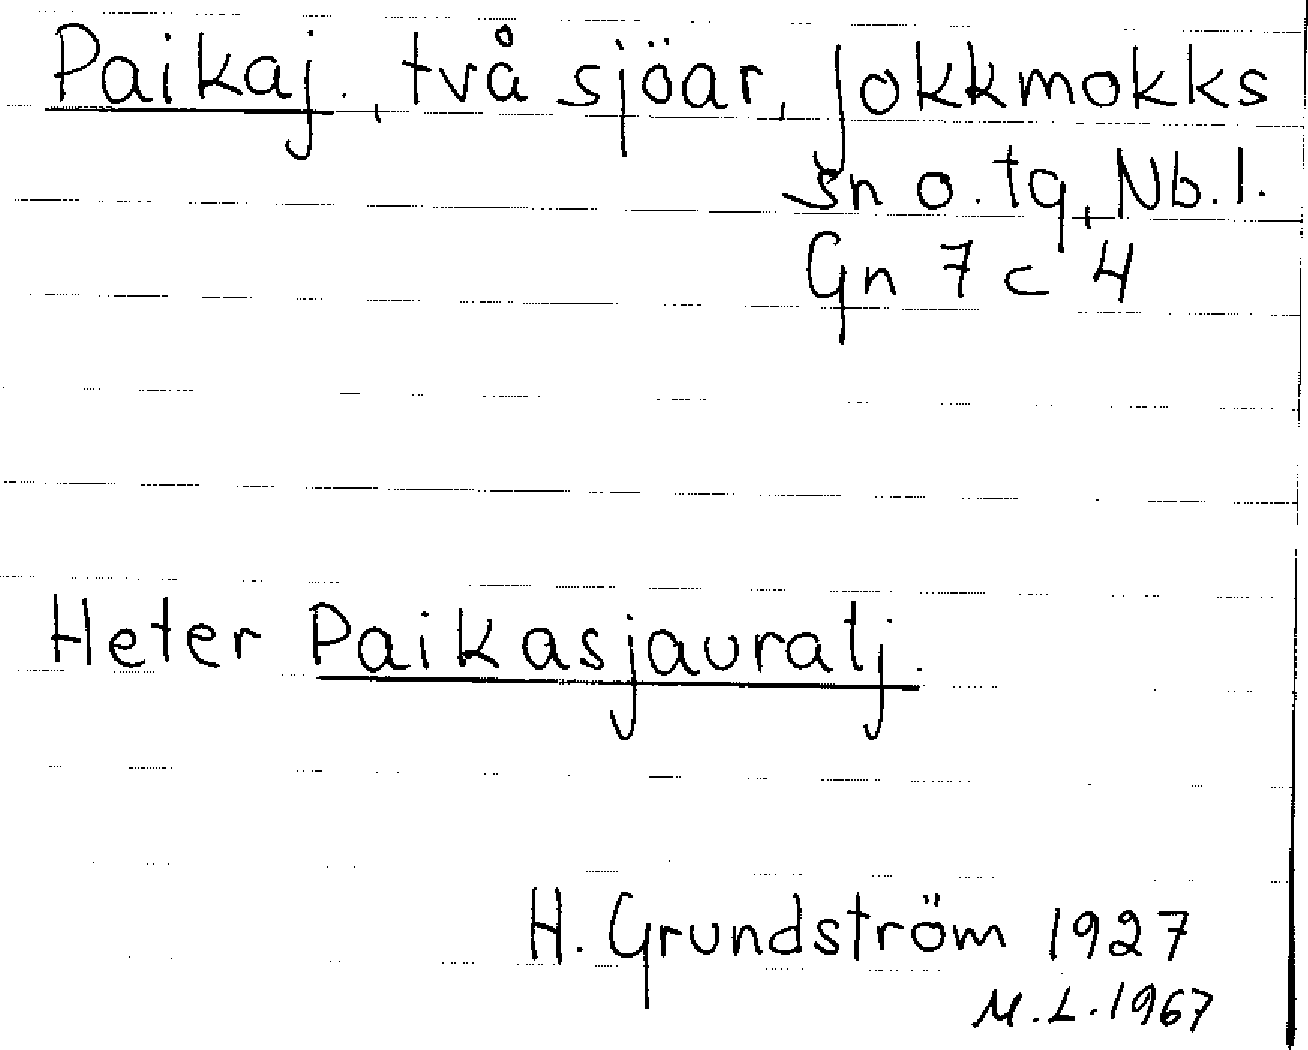 Paikaj., två sjöar, Jokkmokks
sn o. tg, Nb. l.
Gn 7 c 4
Heter Paikasjauratj.
H. Grundström 1927
M.L. 1967